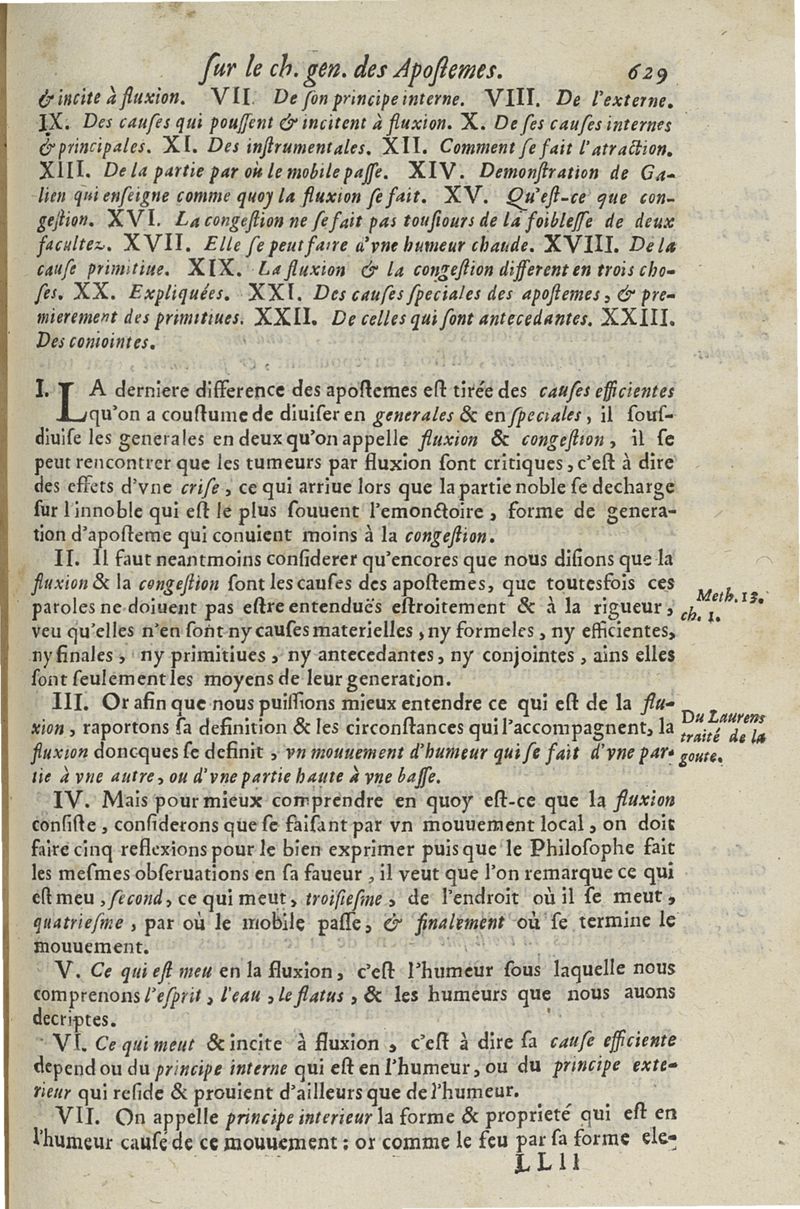 ſur le ch. gen. des Apoſtemes. 629
& incite à fluxion. VII. De ſon principe interne. VIII. De l'externe.
IX. Des cauſes qui pouſſent & incitent à fluxion. X. De ſes cauſes internes
& principales. XI. Des inſtrumentales. XII. Comment ſe fait l'atraction.
XIII. De la partie par où le mobile paſſe. XIV. Demonſtration de Ga-
lien qui enſeigne comme quoy la fluxion ſe fait. XV. Qu'eſt-ce que con-
geſtion. XVI. La congeſtion ne ſe fait pas touſiours de la foibleſſe de deux
facultez. XVII. Elle ſe peut faire d'vne humeur chaude. XVIII. De la
cauſe primitiue. XIX. La fluxion & la congeſtion different en trois cho-
ſes. XX. Expliquées. XXI. Des cauſes ſpeciales des apoſtemes, & pre-
mierement des primitiues. XXII. De celles qui ſont antecedantes. XXIII.
Des coniointes.
I. LA derniere difference des apoſtemes eſt tirée des cauſes efficientes
qu'on a couſtume de diuiſer en generales & en ſpeciales, il ſouſ-
diuiſe les generales en deux qu'on appelle fluxion & congeſtion, il ſe
peut rencontrer que les tumeurs par fluxion ſont critiques, c'eſt à dire
des effets d'vne criſe, ce qui arriue lors que la partie noble ſe decharge
ſur l'innoble qui eſt le plus ſouuent l'emonctoire, forme de genera-
tion d'apoſteme qui conuient moins à la congeſtion.
II. Il faut neantmoins conſiderer qu'encores que nous diſions que la
fluxion & la congeſtion ſont les cauſes des apoſtemes, que toutesfois ces
paroles ne doiuent pas eſtre entenduës eſtroitement & à la rigueur,
Meth. 13.
ch. 1.
veu qu'elles n'en ſont ny cauſes materielles, ny formeles, ny efficientes,
ny finales, ny primitiues, ny antecedantes, ny conjointes, ains elles
ſont ſeulement les moyens de leur generation.
III. Or afin que nous puiſſions mieux entendre ce qui eſt de la flu-
xion, raportons ſa definition & les circonſtances qui l'accompagnent, la
Du Laurens
traité de la
goute.
fluxion doncques ſe definit, vn mouuement d'humeur qui ſe fait d'vne par-
tie à vne autre, ou d'vne partie haute à vne baſſe.
IV. Mais pour mieux comprendre en quoy eſt-ce que la fluxion
conſiſte, conſiderons que ſe faiſant par vn mouuement local, on doit
faire cinq reflexions pour le bien exprimer puis que le Philoſophe fait
les meſmes obſeruations en ſa faueur, il veut que l'on remarque ce qui
eſt meu, ſecond, ce qui meut, troiſieſme, de l'endroit où il ſe meut,
quatrieſme, par où le mobile paſſe, & finalement où ſe termine le
mouuement.
V. Ce qui eſt meu en la fluxion, c'eſt l'humeur ſous laquelle nous
comprenons l'eſprit, l'eau, le flatus, & les humeurs que nous auons
decriptes.
VI. Ce qui meut & incite à fluxion, c'eſt à dire ſa cauſe efficiente
depend ou du principe interne qui eſt en l'humeur, ou du principe exte-
rieur qui reſide & prouient d'ailleurs que de l'humeur.
VII. On appelle principe interieur la forme & proprieté qui eſt en
l'humeur cauſe de ce mouuement: or comme le feu par ſa forme ele-
LLll